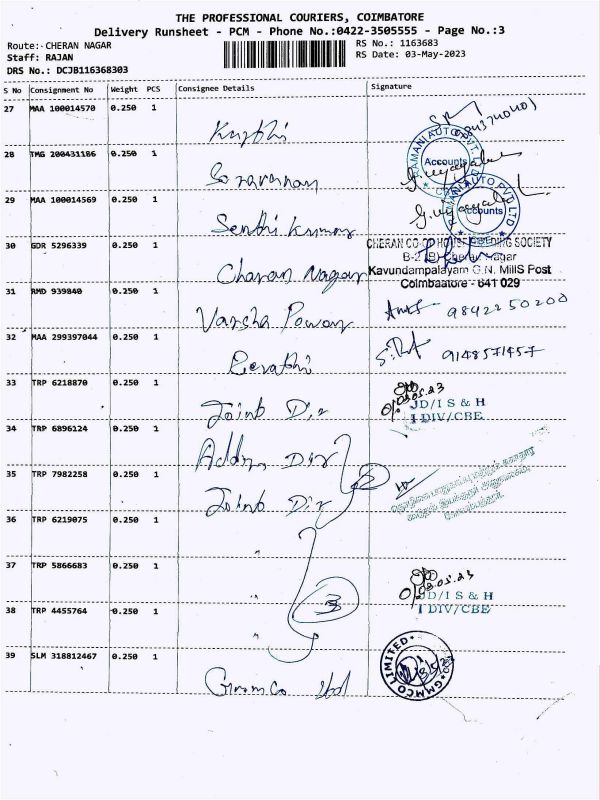 THE PROFESSIONAL COURIERS, COIMBATORE
Delivery Runsheet - PCM - Phone No.:0422-3505555 - Page No.:3
Route:- CHERAN NAGAR
RS No.: 1163683
Staff: RAJAN
RS Date: 03-May-2023
DRS No.: DCJB116368303
S No Consignment No Weight PCS Consignee Details Signature
27 MAA 100014570 0.250 1
28 TMG 200431186 0.250 1
Saravanan
RAMANI AUTO PVT. LTD
Accounts
29 MAA 100014569 0.250 1
Senthi Kumar
RAMANI AUTO PVT LTD
Accounts
30 GDR 5296339 0.250 1
Charan Nagar
CHERAN CO-OP HOUSE BUILDING SOCIETY
B-2 (B) Cheran Nagar
Kavundampalayam G.N. MillS Post
Coimbaatore - 641 029
31 RMD 939840 0.250 1
Varsha Powar
9842250200
32 MAA 299397044 0.250 1
Revathi
9148571457
33 TRP 6218870 0.250 1
Joint Dir
03.05.23
JD/I S & H
I DIV/CBE
34 TRP 6896124 0.250 1
Addn Dir
35 TRP 7982258 0.250 1
Joint Dir
2
36 TRP 6219075 0.250 1
"
37 TRP 5866683 0.250 1
"
03.05.23
JD/I S & H
I DIV/CBE
38 TRP 4455764 0.250 1
"
3
39 SLM 318812467 0.250 1
Gmmco ltd
GMMCO LIMITED